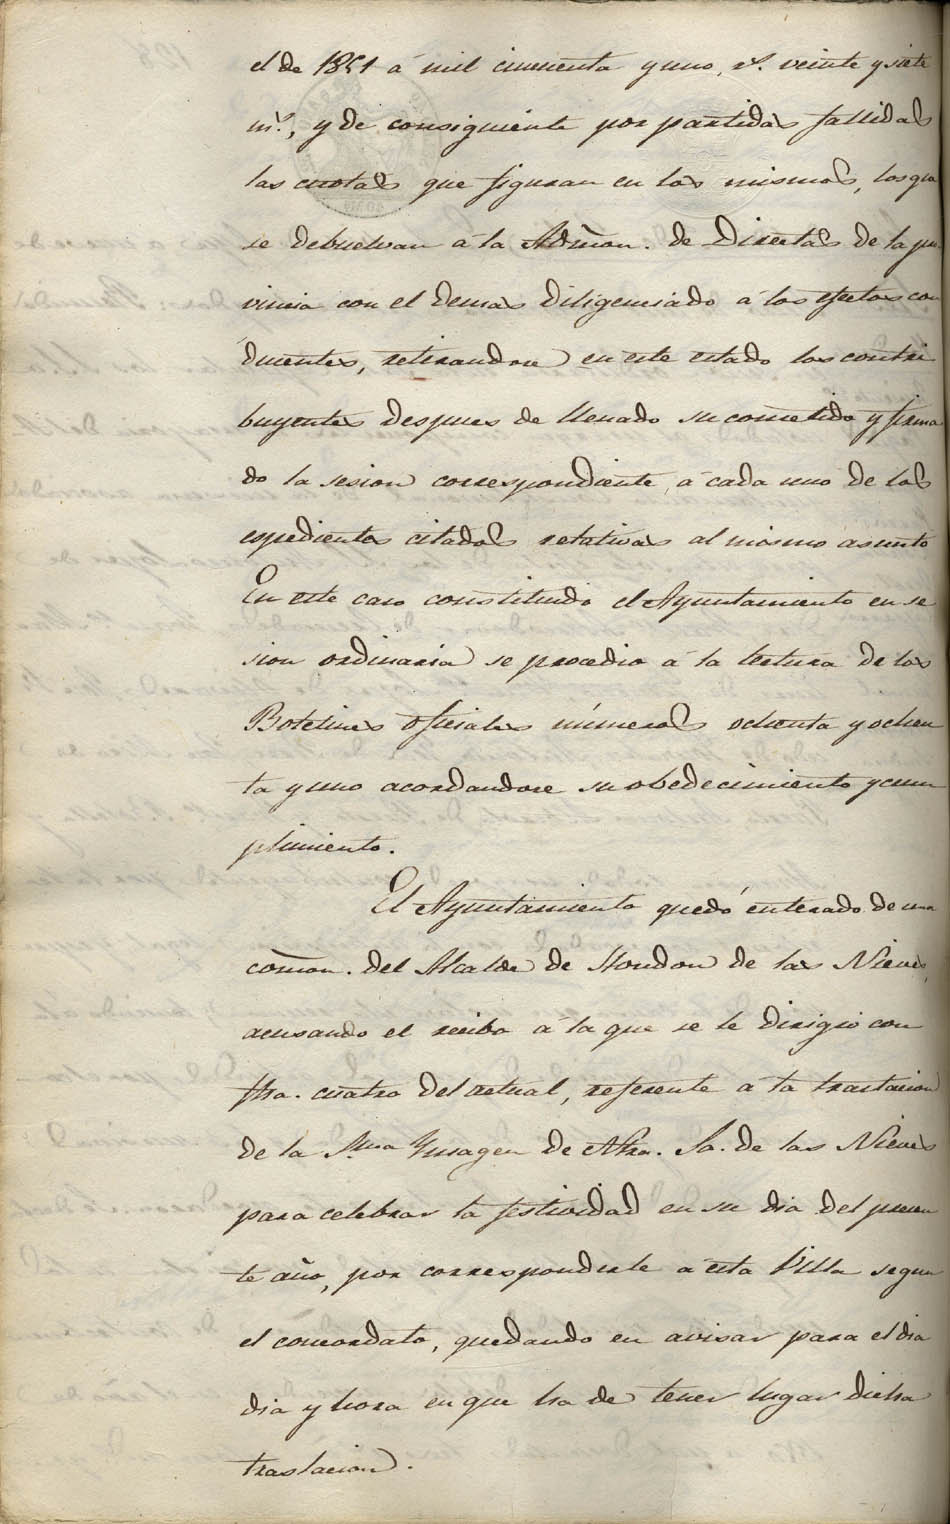 el de 1851 á mil cincuenta y uno, r.s veinte y siete
m.s, y de consiguiente por partidas fallidas
las cuotas que figuran en las mismas, los que
se debuelvan á la Admon. de Directas de la pro
vincia con el demas diligenciado á los efectos con
ducentes, retirandose en este estado los contri
buyentes despues de llenado su cometido y firma
do la sesion correspondiente, á cada uno de los
espedientes citados relativos al mismo asunto
En este caso constituido el Ayuntamiento en se
sion ordinaria se procedio á la lectura de los
Boletines oficiales números ochenta y ochen
ta y uno acordandose su obedecimiento y cum
plimiento.
El Ayuntamiento quedó enterado de una
comon. del Alcalde de Hondon de las Nieves,
acusando el recibo á la que se le dirigio con
fha. cuatro del actual, referente á la traslacion
de la S.ma Ymagen de Ntra. Sa. de las Nieves
para celebrar la festividad en su dia del presen
te año, por corresponderle a esta Villa segun
el concordato, quedando en avisar para el dia
dia y hora en que ha de tener lugar dicha
traslacion.